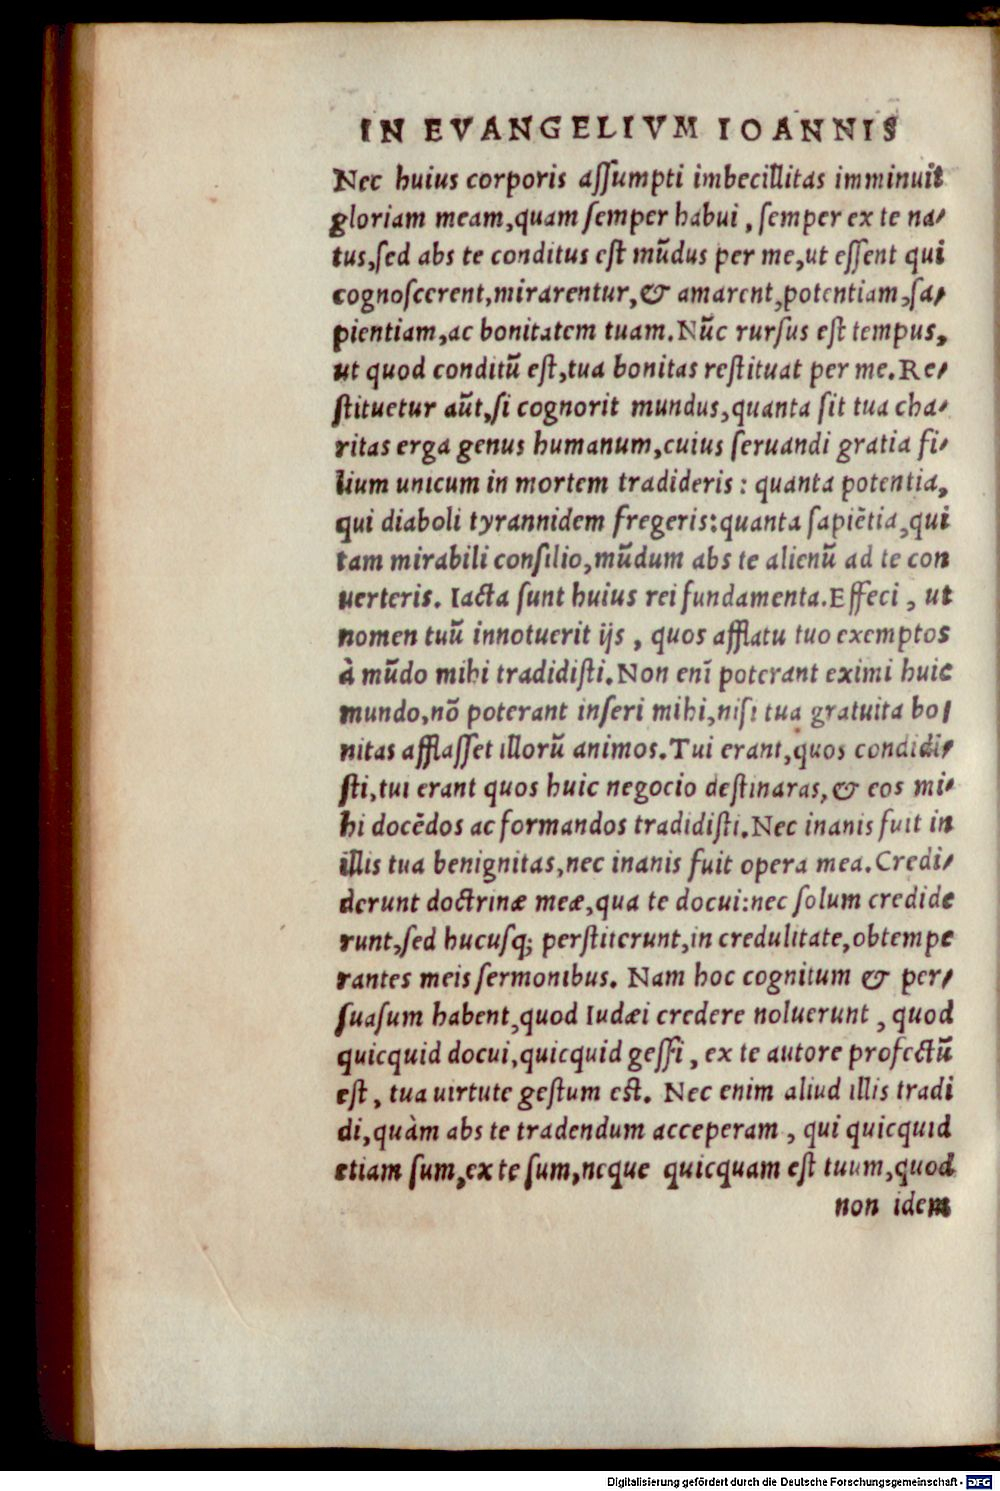 IN EVANGELIVM IOANNIS
Nec huius corporis aſſumpti imbecillitas imminuit
gloriam meam,quam ſemper habui , ſemper ex te na-
tus,ſed abs te conditus eſt mũdus per me,ut eſſent qui
cognoſcerent,mirarentur,& amarent,potentiam,ſa-
pientiam,ac bonitatem tuam.Nũc rurſus eſt tempus,
ut quod conditũ eſt,tua bonitas reſtituat per me.Re-
ſtituetur aũt,ſi cognorit mundus,quanta ſit tua cha-
ritas erga genus humanum,cuius ſeruandi gratia fi-
lium unicum in mortem tradideris : quanta potentia,
qui diaboli tyrannidem fregeris:quanta ſapiẽtia,qui
tam mirabili conſilio,mũdum abs te alienũ ad te con
uerteris. Iacta ſunt huius rei fundamenta.Effeci , ut
nomen tuũ innotuerit ijs , quos afflatu tuo exemptos
à mũdo mihi tradidiſti.Non enĩ poterant eximi huic
mundo,nõ poterant inſeri mihi,niſi tua gratuita bo-
nitas afflaſſet illorũ animos.Tui erant,quos condidi-
ſti,tui erant quos huic negocio deſtinaras,& eos mi-
hi docẽdos ac formandos tradidiſti.Nec inanis fuit in
illis tua benignitas,nec inanis fuit opera mea.Credi-
derunt doctrinæ meæ,qua te docui:nec ſolum credide
runt,ſed hucuſq; perſtiterunt,in credulitate,obtempe
rantes meis ſermonibus. Nam hoc cognitum & per-
ſuaſum habent,quod Iudæi credere noluerunt , quod
quicquid docui,quicquid geſſi , ex te autore profectũ
eſt , tua uirtute geſtum eſt. Nec enim aliud illis tradi
di,quàm abs te tradendum acceperam , qui quicquid
etiam ſum,ex te ſum,neque quicquam eſt tuum,quod
non idem
Digitalisierung gefördert durch die Deutsche Forschungsgemeinschaft - DFG